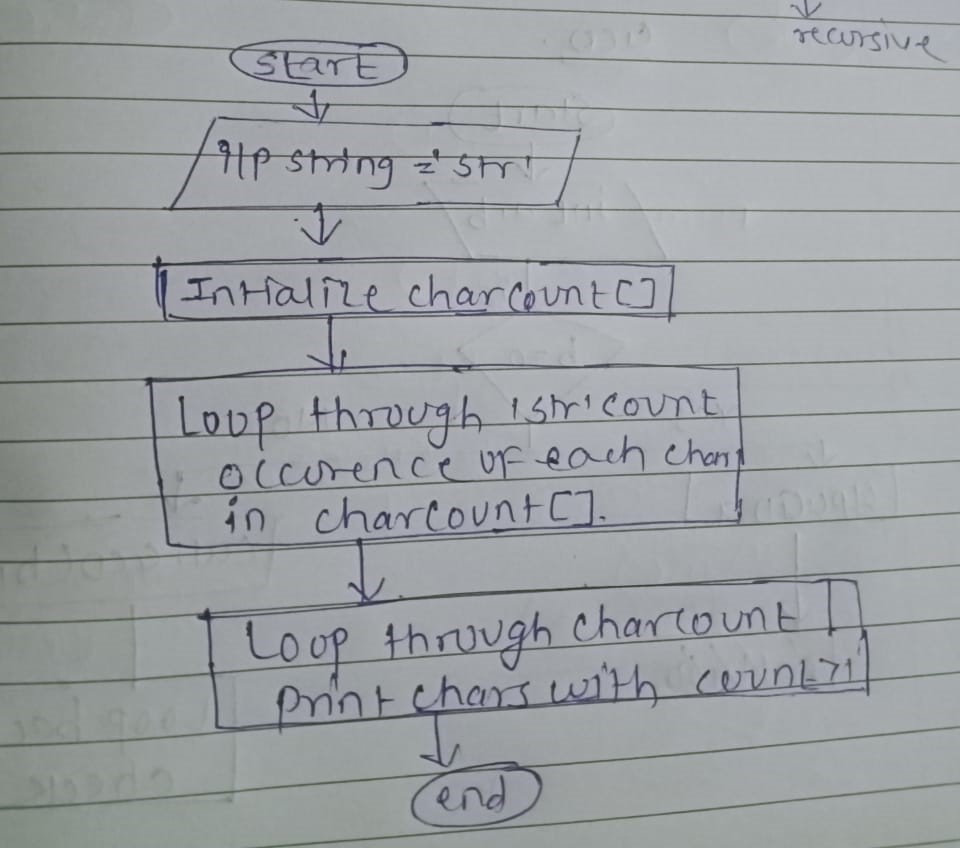 recursive
start
I/p string = 'str'
Intialize charcount[]
Loop through 'str' count
occurence of each char
in charcount[].
Loop through charcount
print chars with count>1
end